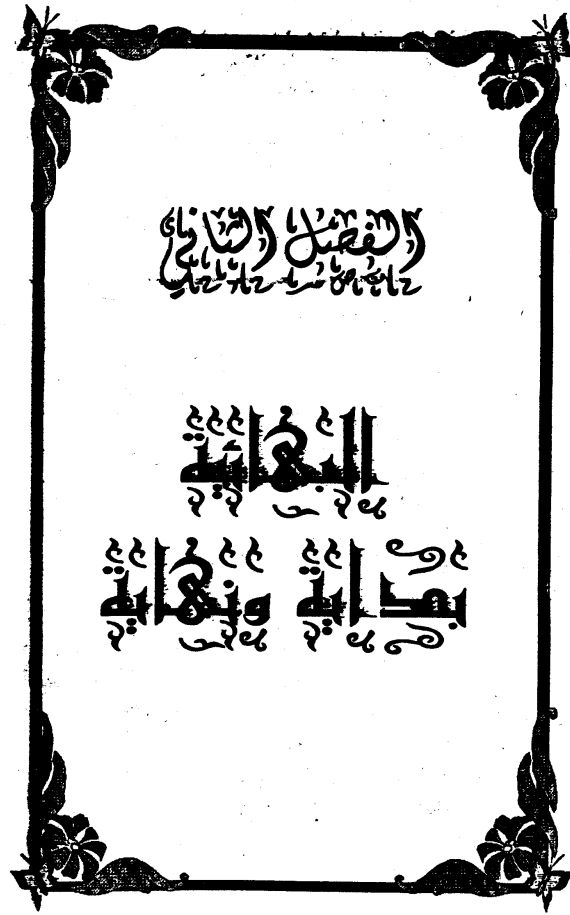 الفصل الثاني
البهائية
بداية ونهاية